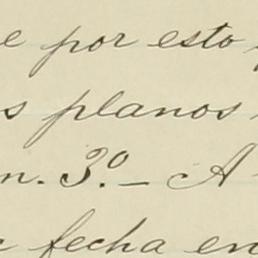 e por esto
s planos
n. 3º. — A
fecha en